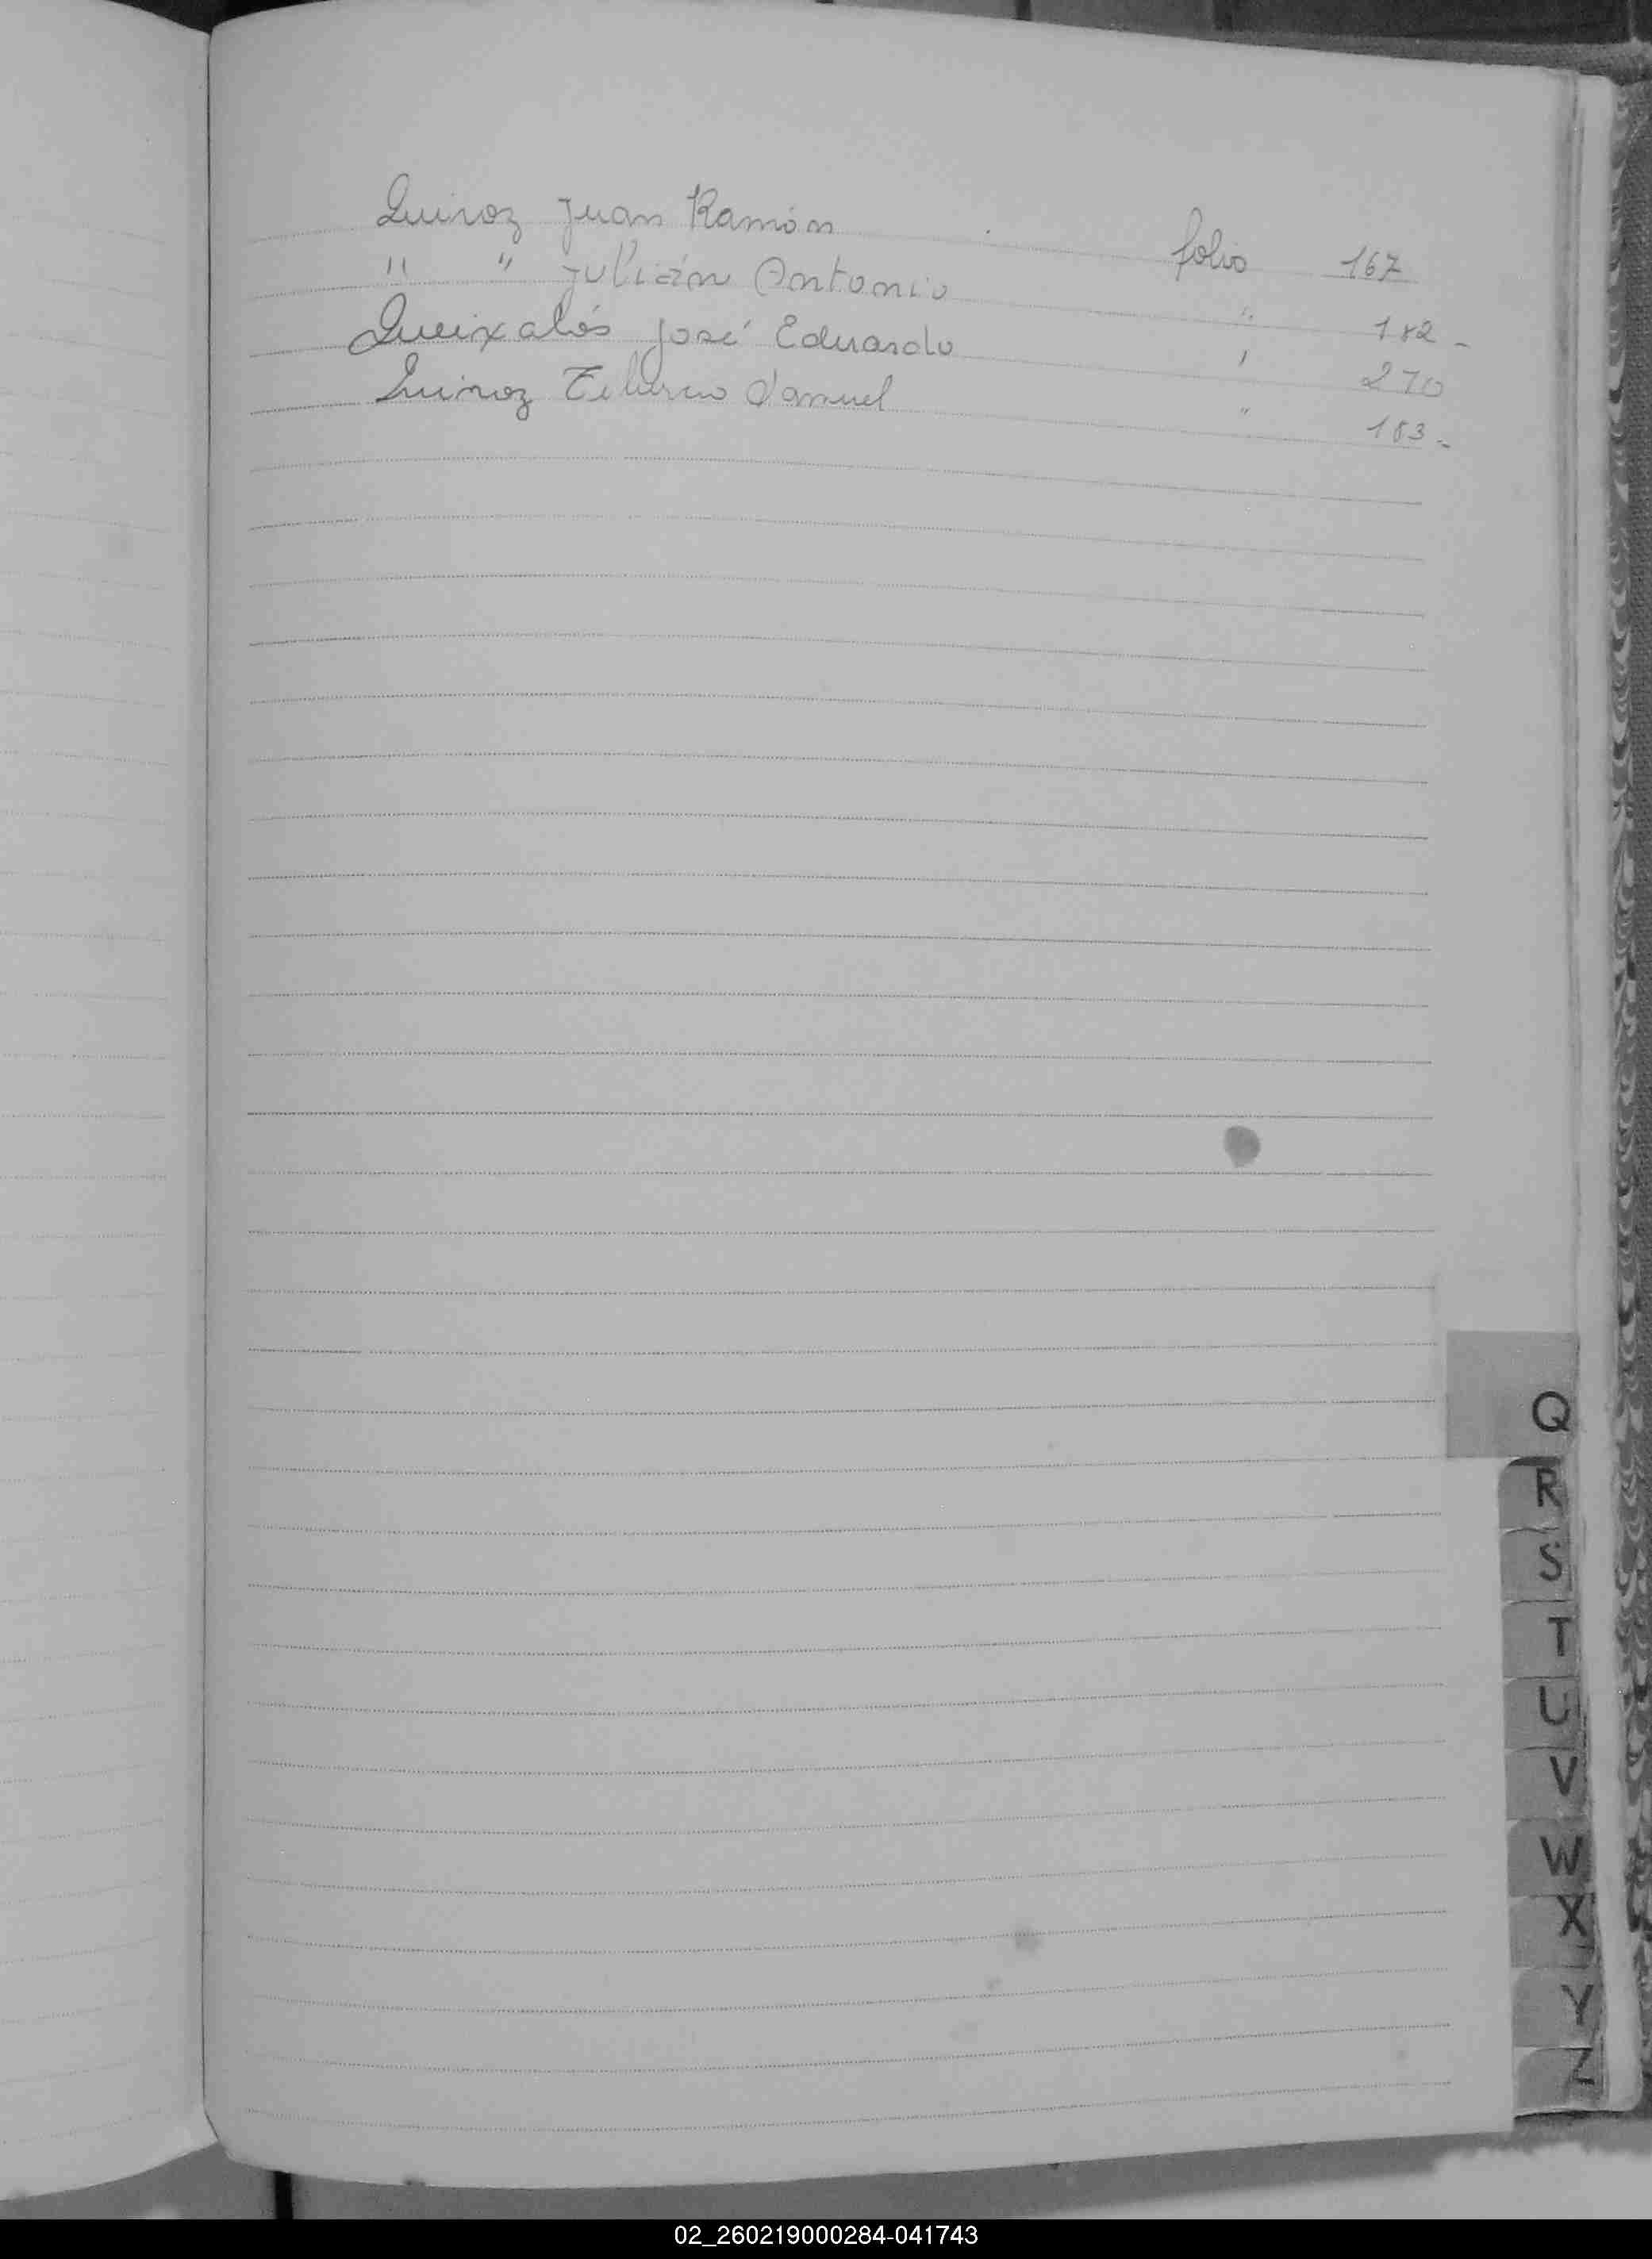 Quiroz Juan Ramón folio 167
" " Julián Antonio " 182 -
Queixalós José Eduardo " 270
Quiroz Tiburcio Samuel " 183 -
Q
R
S
T
U
V
W
X
Y
Z
02_260219000284-041743